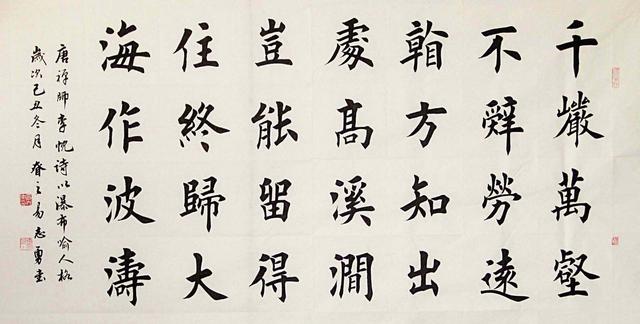 千巖萬壑
不辭勞遠
看方知出
處高溪澗
豈能留得
住終歸大
海作波濤
唐禅師李忱诗以瀑布喻人格
歲次己丑冬月主易志勇书